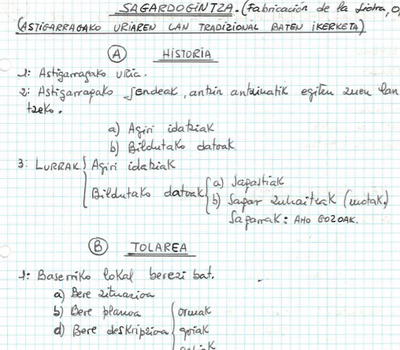 SAGARDOGINTZA. (Fabricación de la Sidra, o
(ASTIGARRAGAKO URIAREN LAN TRADIZIONAL BATEN IKERKETA)
A HISTORIA
1: Astigarragako uria.
2: Astigarragako jendeak, antzin antzinatik egiten zuen lan
tzeko.
a) Agiri idatziak
b) Bildutako datoak
3: LURRAK { Agiri idatziak
Bildutako datoak { a) Sagastiak
b) Sagar zuhaitzak (motak)
Sagarrak: AHO GOZOAK.
B TOLAREA
1: Baserriko lokal berezi bat.
a) Bere zituazioa
b) Bere planoa { ormak
d) Bere deskripzioa goiak